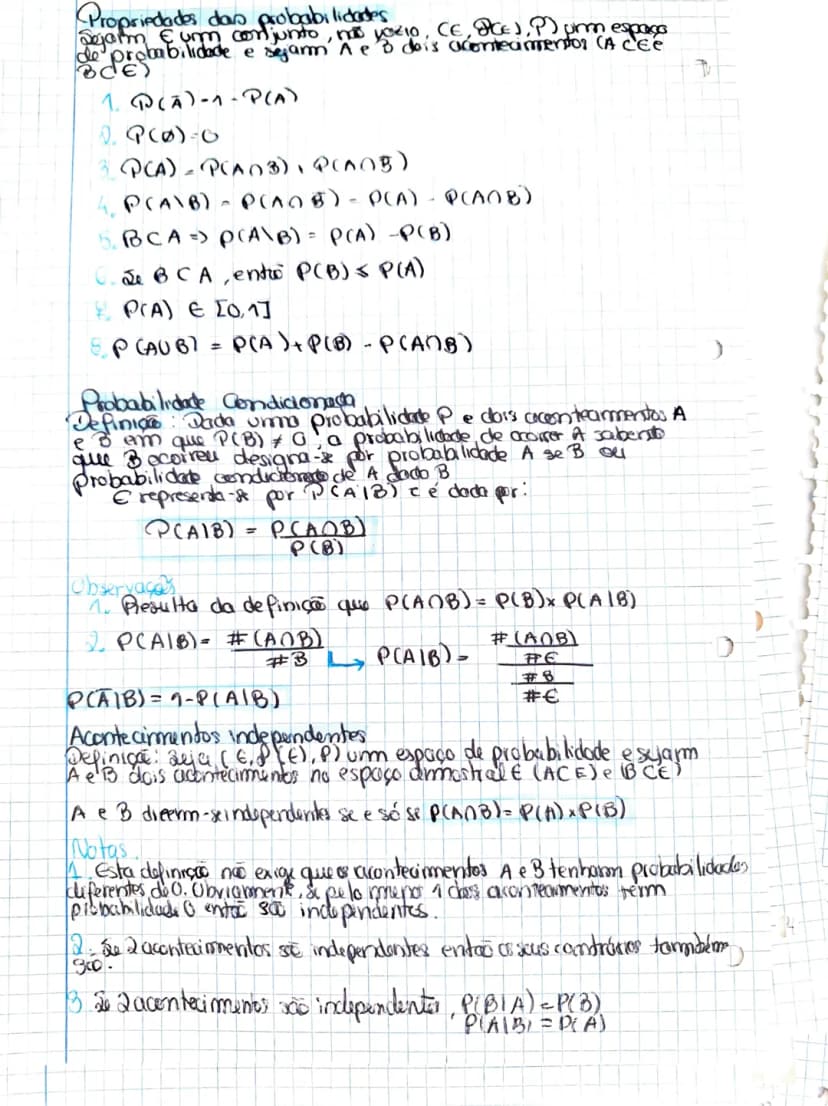 Propriedades das probabilidades
Sejam E um conjunto, não vazio, (E, P(E), P) um espaço
de probabilidade e sejam A e B dois acontecimentos (A⊂E e
B⊂E)
1. P(Ā)=1-P(A)
2. P(∅)=0
3. P(A) = P(A∩B)+P(A∩B̄)
4. P(A\B) = P(A∩B̄) = P(A) - P(A∩B)
5. B⊂A => P(A\B) = P(A) - P(B)
6. Se B⊂A, então P(B)≤P(A)
7. P(A) ∈ [0,1]
8. P(A∪B) = P(A)+P(B) - P(A∩B)
Probabilidade Condicionada
Definição: Dada uma probabilidade P e dois acontecimentos A
e B em que P(B) ≠ 0, a probabilidade de ocorrer A sabendo
que B ocorreu designa-se por probabilidade A se B ou
probabilidade condicionada de A dado B
E representa-se por P(A|B) e é dada por:
P(A|B) = P(A∩B) / P(B)
Observações
1. Resulta da definição que P(A∩B) = P(B)× P(A|B)
2. P(A|B) = #(A∩B) / #B ↳ P(A|B) = (#(A∩B) / #E) / (#B / #E)
P(Ā|B) = 1-P(A|B)
Acontecimentos independentes
Definição: Seja (E, P(E), P) um espaço de probabilidade e sejam
A e B dois acontecimentos no espaço amostral E (A⊂E) e (B⊂E)
A e B dizem-se independentes se e só se P(A∩B)= P(A)×P(B)
Notas
1. Esta definição não exige que os acontecimentos A e B tenham probabilidades
diferentes de 0. Obviamente, se pelo menos 1 dos acontecimentos tem
probabilidade 0 então são independentes.
2. Se 2 acontecimentos são independentes então os seus contrários também
são.
3 Se 2 acontecimentos são independentes, P(B|A) = P(B)
P(A|B) = P(A)